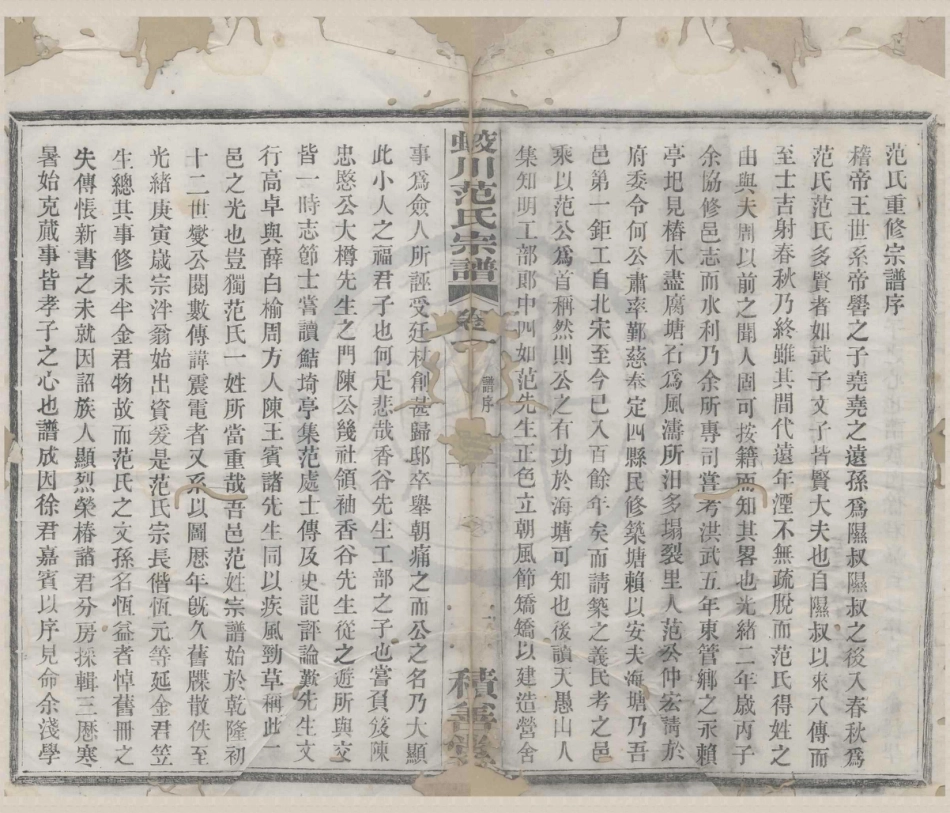 范氏重修宗譜序
稽帝王世系帝嚳之子堯堯之遠孫爲隰叔隰叔之後入春秋爲
范氏范氏多賢者如武子文子皆賢大夫也自隰叔以來八傳而
至士吉射春秋乃終雖其間代遠年湮不無疏脫而范氏得姓之
由與夫周以前之聞人固可按籍而知其畧也光緒二年歲丙子
余協修邑志而水利乃余所專司嘗考洪武五年東管鄉之永賴
亭圯見椿木盡腐塘石爲風濤所汨多塌裂里人范公仲宏請於
府委令何公肅率鄞慈奉定四縣民修築塘賴以安夫海塘乃吾
邑第一鉅工自北宋至今已入百餘年矣而請築之義民考之邑
乘以范公爲首稱然則公之有功於海塘可知也後讀天愚山人
集知明工部郎中四如范先生正色立朝風節矯矯以建造營舍
蛟川范氏宗譜
卷一
譜序
積善堂
事爲僉人所誣受廷杖創甚歸邸卒舉朝痛之而公之名乃大顯
此小人之福君子也何足悲哉香谷先生工部之子也嘗負笈陳
忠愍公大樽先生之門陳公幾社領袖香谷先生從之遊所與交
皆一時志節士嘗讀鮚埼亭集范處士傳及史記評論敘先生文
行高卓與薛白榆周方人陳王賓諸先生同以疾風勁草稱此一
邑之光也豈獨范氏一姓所當重哉吾邑范姓宗譜始於乾隆初
十二世燮公閱數傳諱震電者又系以圖歴年旣久舊牒散佚至
光緒庚寅歲宗泮翁始出資爰是范氏宗長偕恆元等延金君笠
生總其事修未半金君物故而范氏之文孫名恆益者悼舊冊之
失傳悵新書之未就因詔族人顯烈榮椿諸君分房採輯三歴寒
暑始克蕆事皆孝子之心也譜成因徐君嘉賓以序見命余淺學